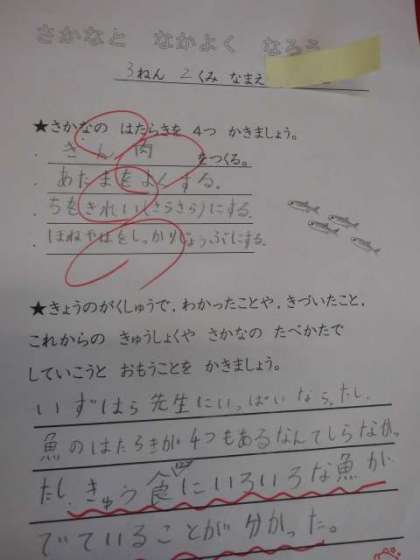 さかなと なかよく なろう
3ねん 2くみ なまえ
★さかなの はたらきを 4つ かきましょう。
・きん肉をつくる。
・あたまをよくする。
・ちをきれい(さらさら)にする。
・ほねやはをしっかりじょうぶにする。
★きょうのがくしゅうで，わかったことや，きづいたこと，
これからの きゅうしょくや さかなの たべかたで
していこうと おもうことを かきましょう。
いずはら先生にいっぱいならったし、
魚のはたらきが4つもあるなんてしらなかっ
たし、きゅう食にいろいろな魚が
でていることが分かった。